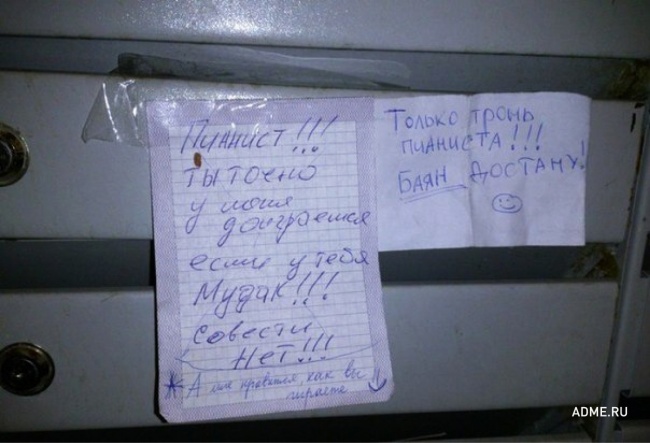 Пианист!!!
ты точно
у меня
доиграешся
если у тебя
Мудак!!!
совести
Нет!!!
* А мне нравится, как вы
играете
Только тронь
пианиста!!!
Баян достану!
ADME.RU